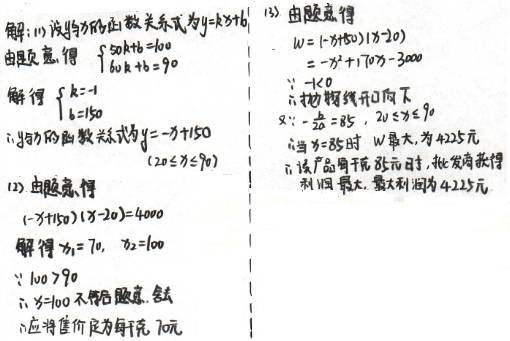 解:(1)设y与x的函数关系式为y=kx+b
由题意得 {50k+b=100
60k+b=90
解得 {k=-1
b=150
∴y与x的函数关系式为y=-x+150
(20≤x≤90)
(2) 由题意得
(-x+150)(x-20)=4000
解得 x₁=70, x₂=100
∵ 100>90
∴ x=100 不符合题意,舍去
∴应将售价定为每千克 70元
(3) 由题意得
W=(-x+150)(x-20)
=-x²+170x-3000
∵ -1<0
∴抛物线开口向下
又∵ -b/2a=85, 20≤x≤90
∴当x=85时 W最大,为4225元
∴该产品每千克85元时,批发商获得
利润最大,最大利润为4225元